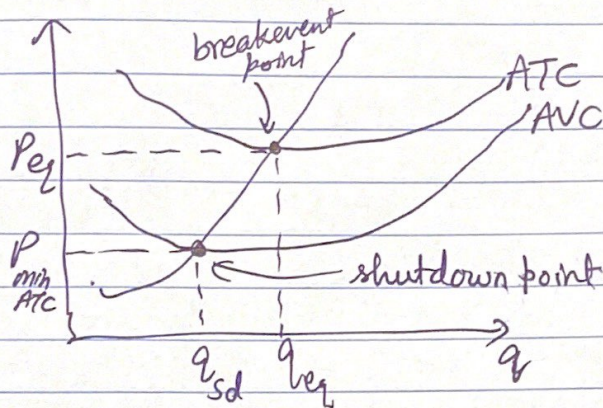 breakevent
point
ATC
AVC
Peq
P
min
ATC
shutdown point
qsd
qeq
q